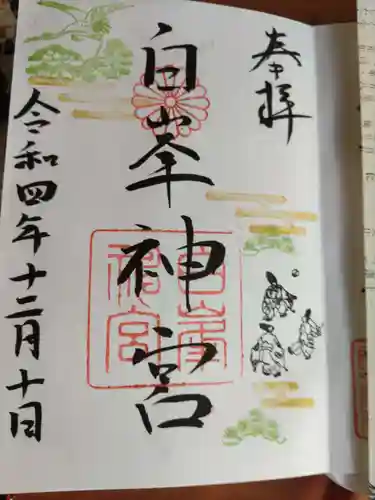 奉拝
白峯神宮
白峯
神宮
令和四年十二月十日